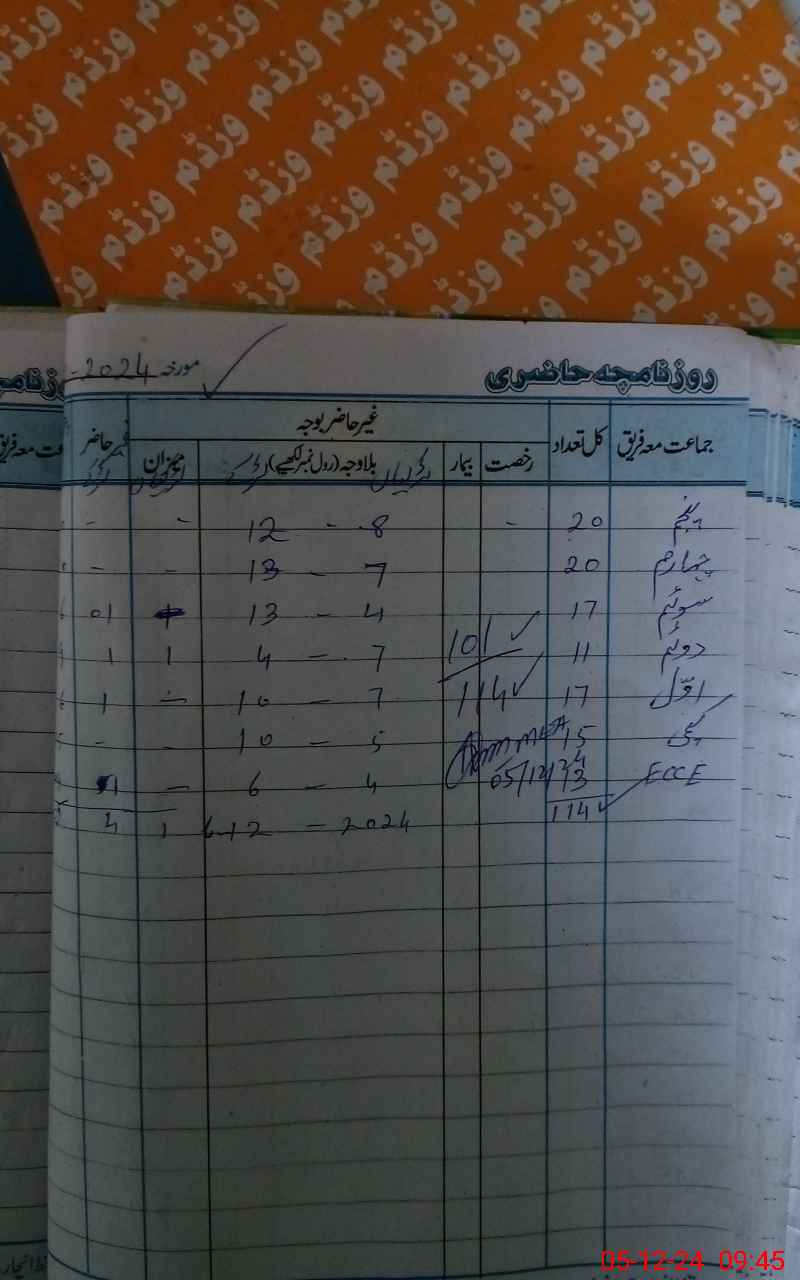 وزڈم وزڈم وزڈم وزڈم وزڈم
روزنامچہ حاضری مورخہ 2024-
جماعت معہ فریق کل تعداد غیر حاضر بوجہ حاضر
رخصت بیمار لڑکیاں بلاوجہ (رول نمبر لکھیے) لڑکے میزان
پنجم 20 - 8 - 12 - -
چہارم 20 7 - 13 - -
سوئم 17 4 - 13 01
دوئم 11 101 7 - 4 1 1
اوّل 17 114 7 - 10 - 1
پکی 15 5 - 10 - -
ECCE 13 05/12/24 4 - 6 - 1
114 6-12 - 2024 1 4
05-12-24 09:45